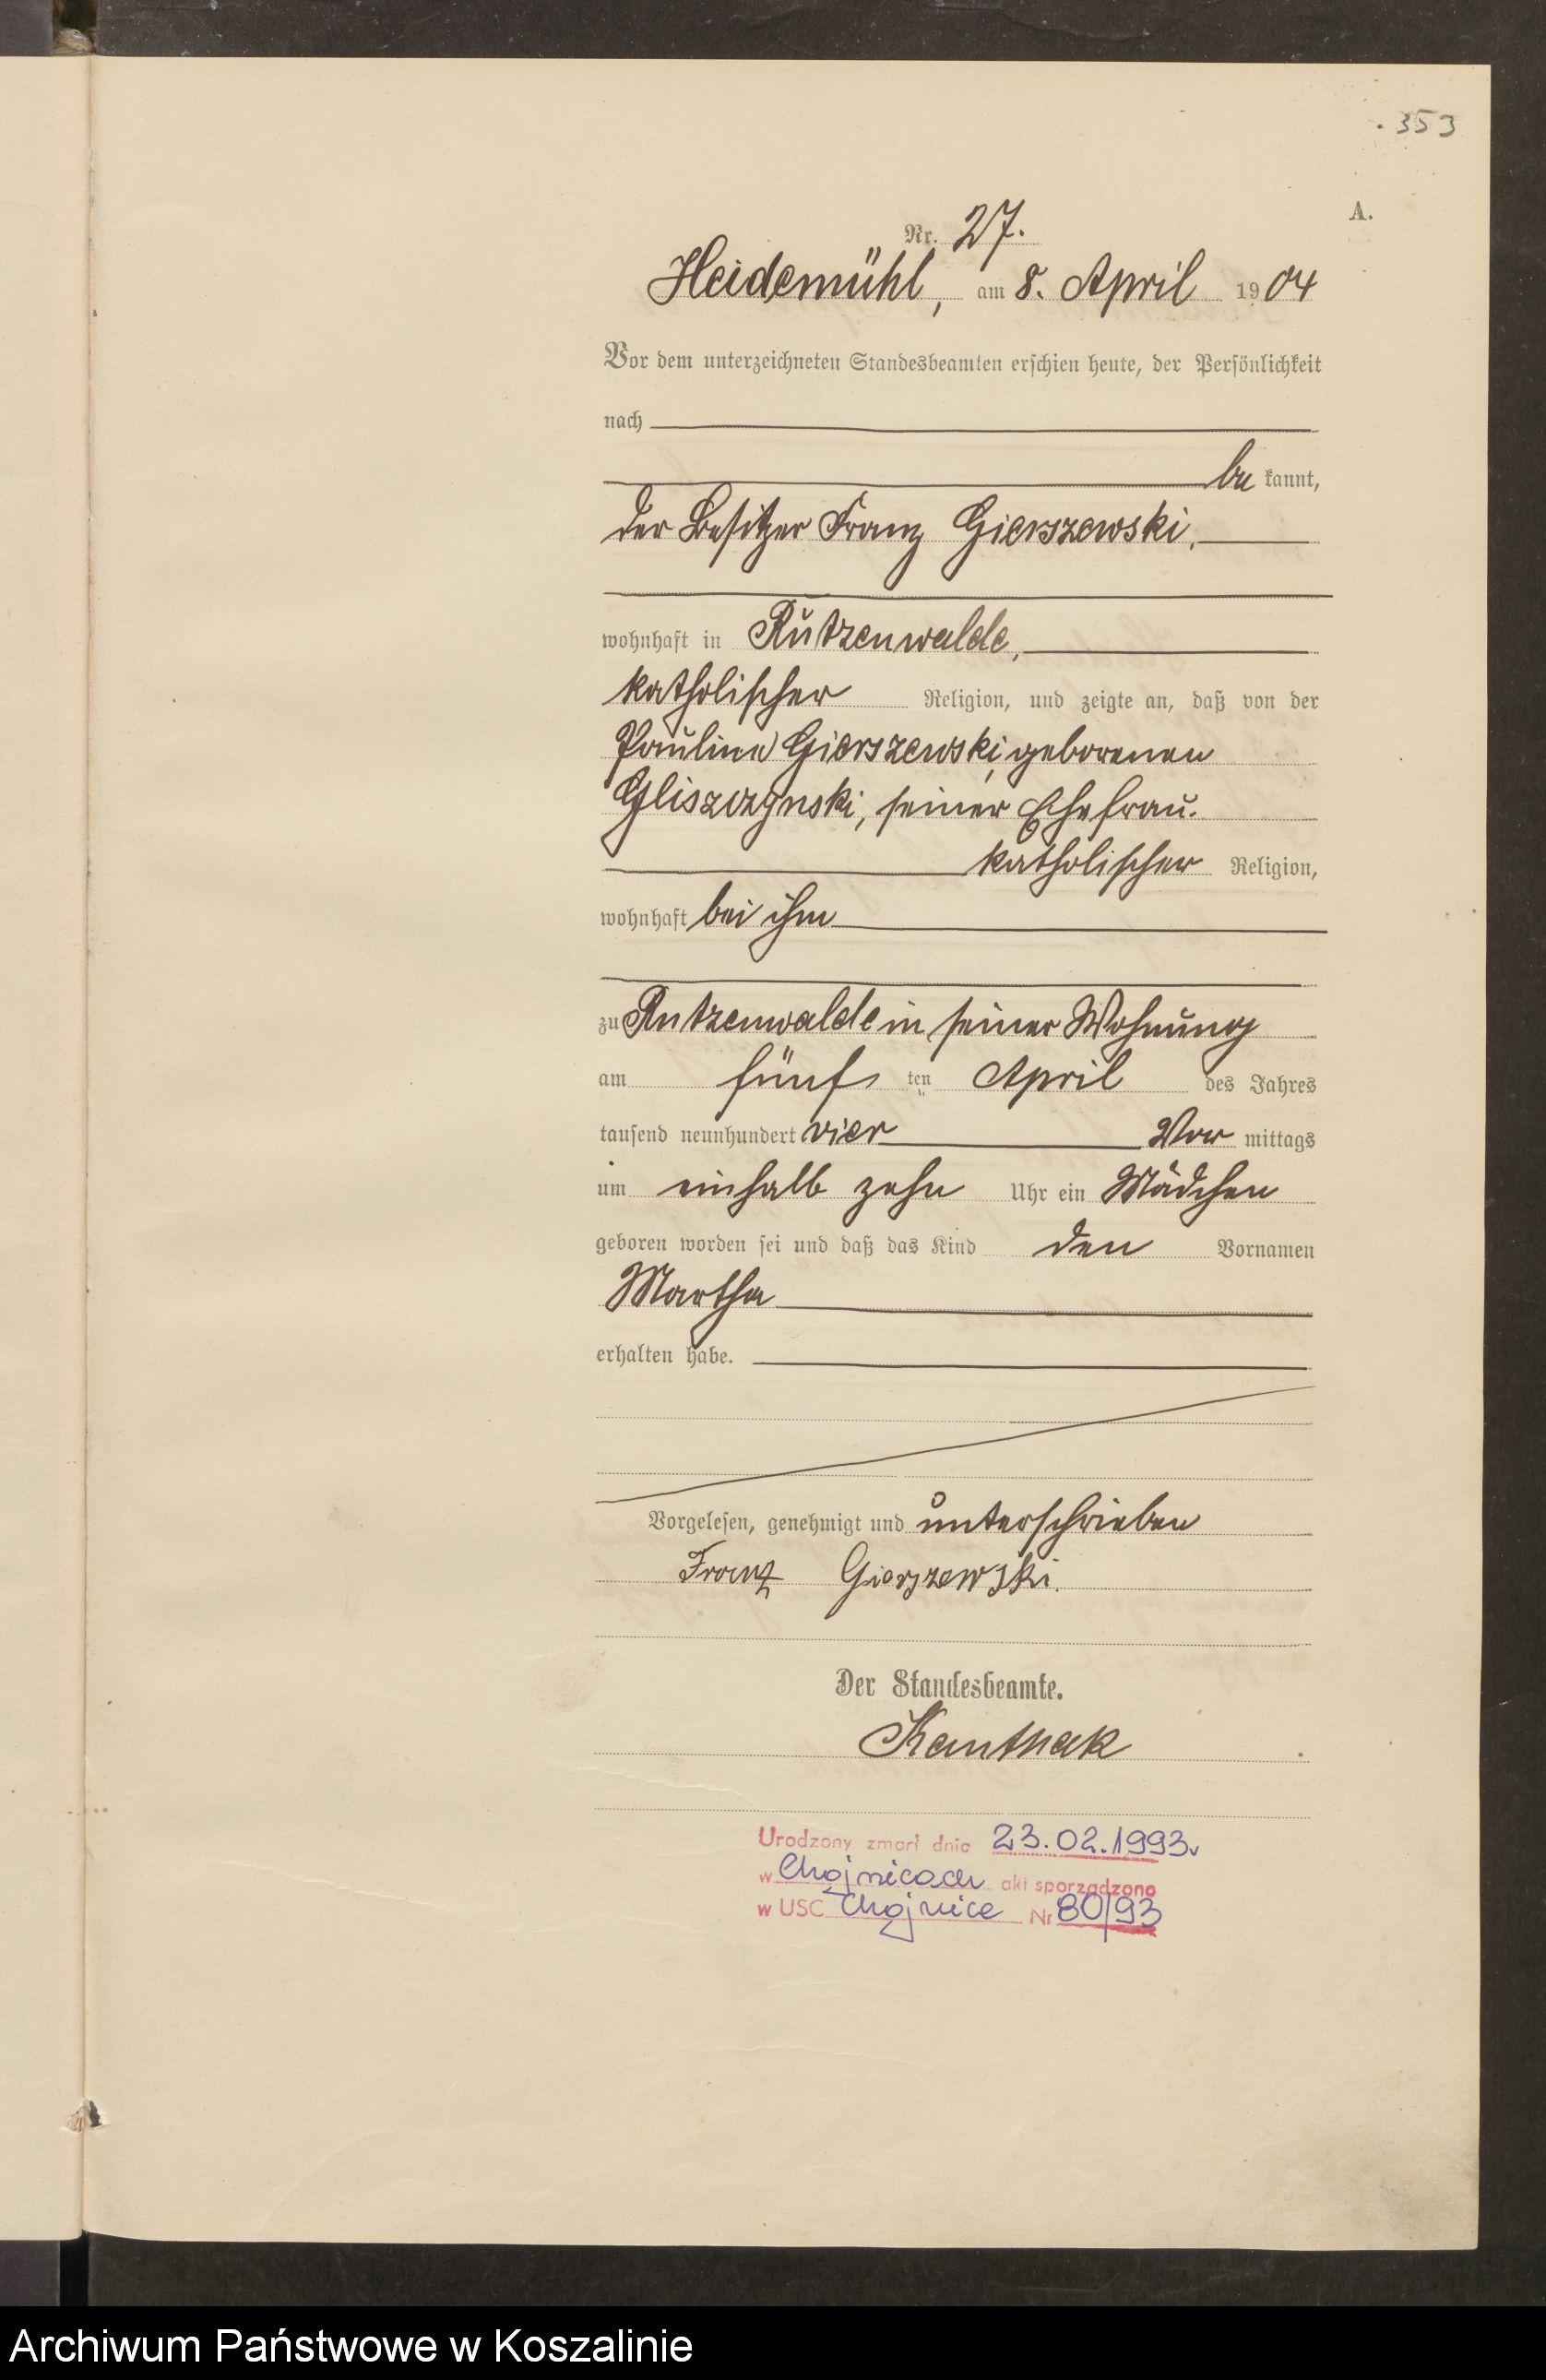 353
A.
Nr. 27.
Heidemühl, am 8. April 1904
Vor dem unterzeichneten Standesbeamten erschien heute, der Persönlichkeit
nach
be kannt,
der Besitzer Franz Gierszewski,
wohnhaft in Rutzenwalde,
katholischer Religion, und zeigte an, daß von der
Pauline Gierszewski, geborenen
Gliszczynski, seiner Ehefrau.
katholischer Religion,
wohnhaft bei ihm
zu Rutzenwalde in seiner Wohnung
am fünf ten April des Jahres
tausend neunhundert vier Vor mittags
um einhalb zehn Uhr ein Mädchen
geboren worden sei und daß das Kind den Vornamen
Martha
erhalten habe.
Vorgelesen, genehmigt und unterschrieben
Franz Gierszewski.
Der Standesbeamte.
Kanthak
Urodzony zmarł dnia 23.02.1993r
w Chojnicach akt sporządzono
w USC Chojnice Nr 80/93
Archiwum Państwowe w Koszalinie